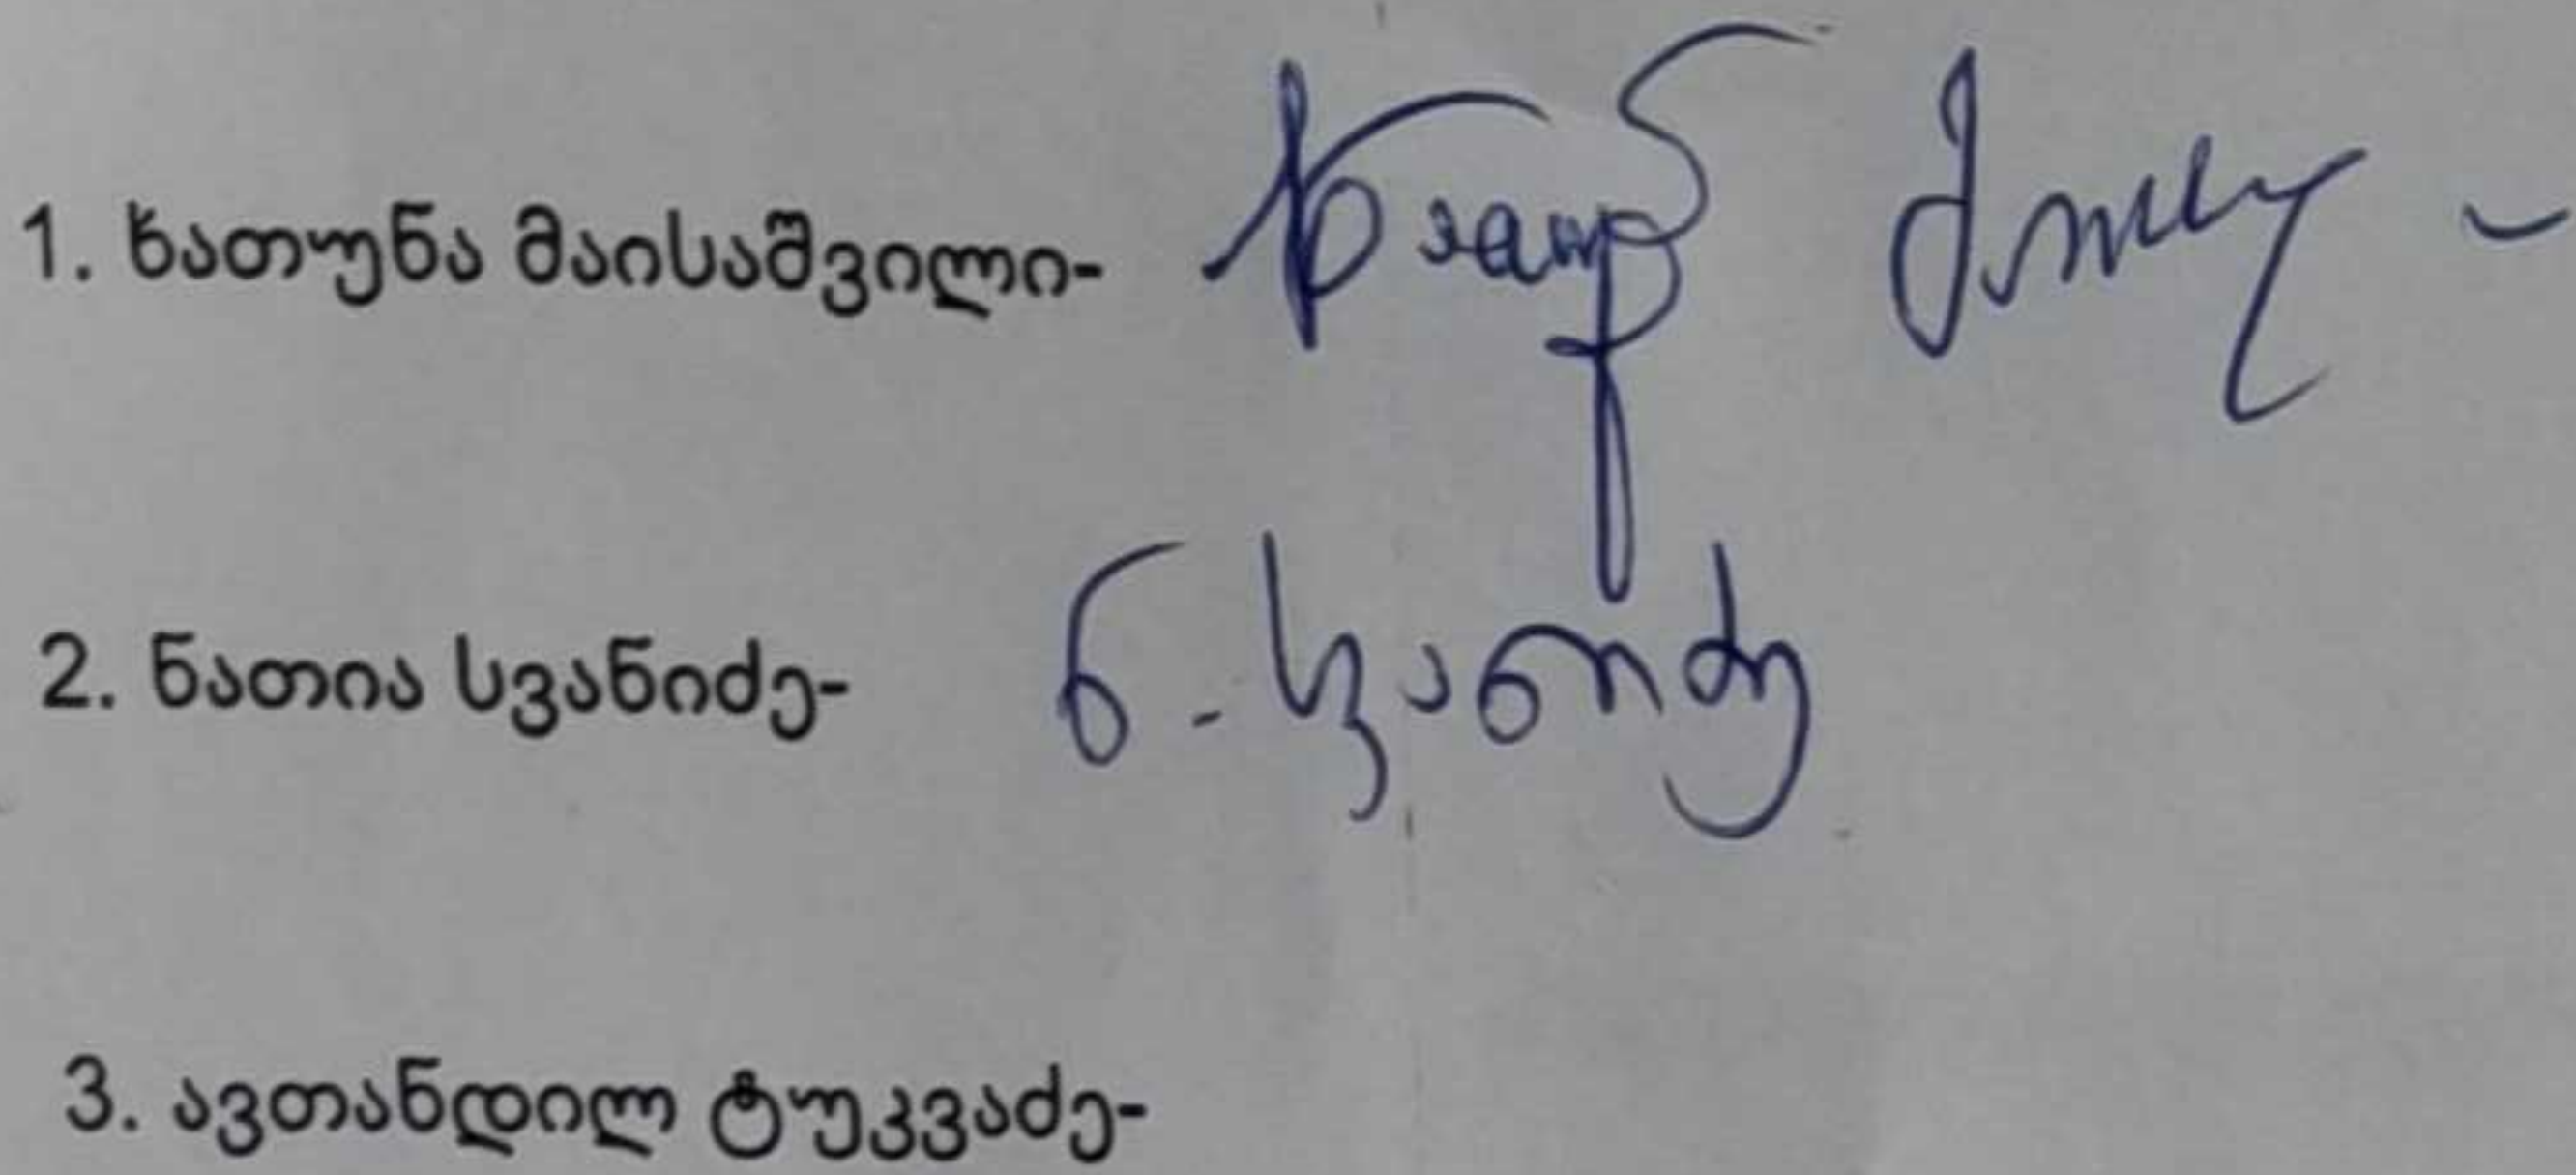 1. ხათუნა მაისაშვილი-
2. ნათია სვანიძე- ნ. სვანიძე
3. ავთანდილ ტუკვაძე-